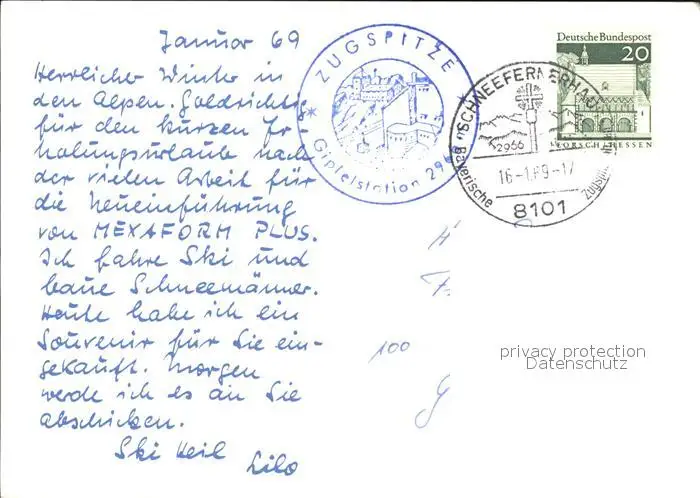 Januar 69
Herrlicher Winter in
den Alpen. Goldrichtig
für den kurzen Er-
holungsurlaub nach
der vielen Arbeit für
die Neueinführung
von MEXAFORM PLUS.
Ich fahre Ski und
baue Schneemänner.
Heute habe ich ein
Souvenir für Sie ein-
gekauft. Morgen
werde ich es an Sie
abschicken.
Ski Heil
Lilo
ZUGSPITZE
Gipfelstation 296
Deutsche Bundespost
20
LORSCH/HESSEN
"SCHNEEFERNERHA
2966
16-1.69-17
Bayerische
Zugspi
8101
100
privacy protection
Datenschutz